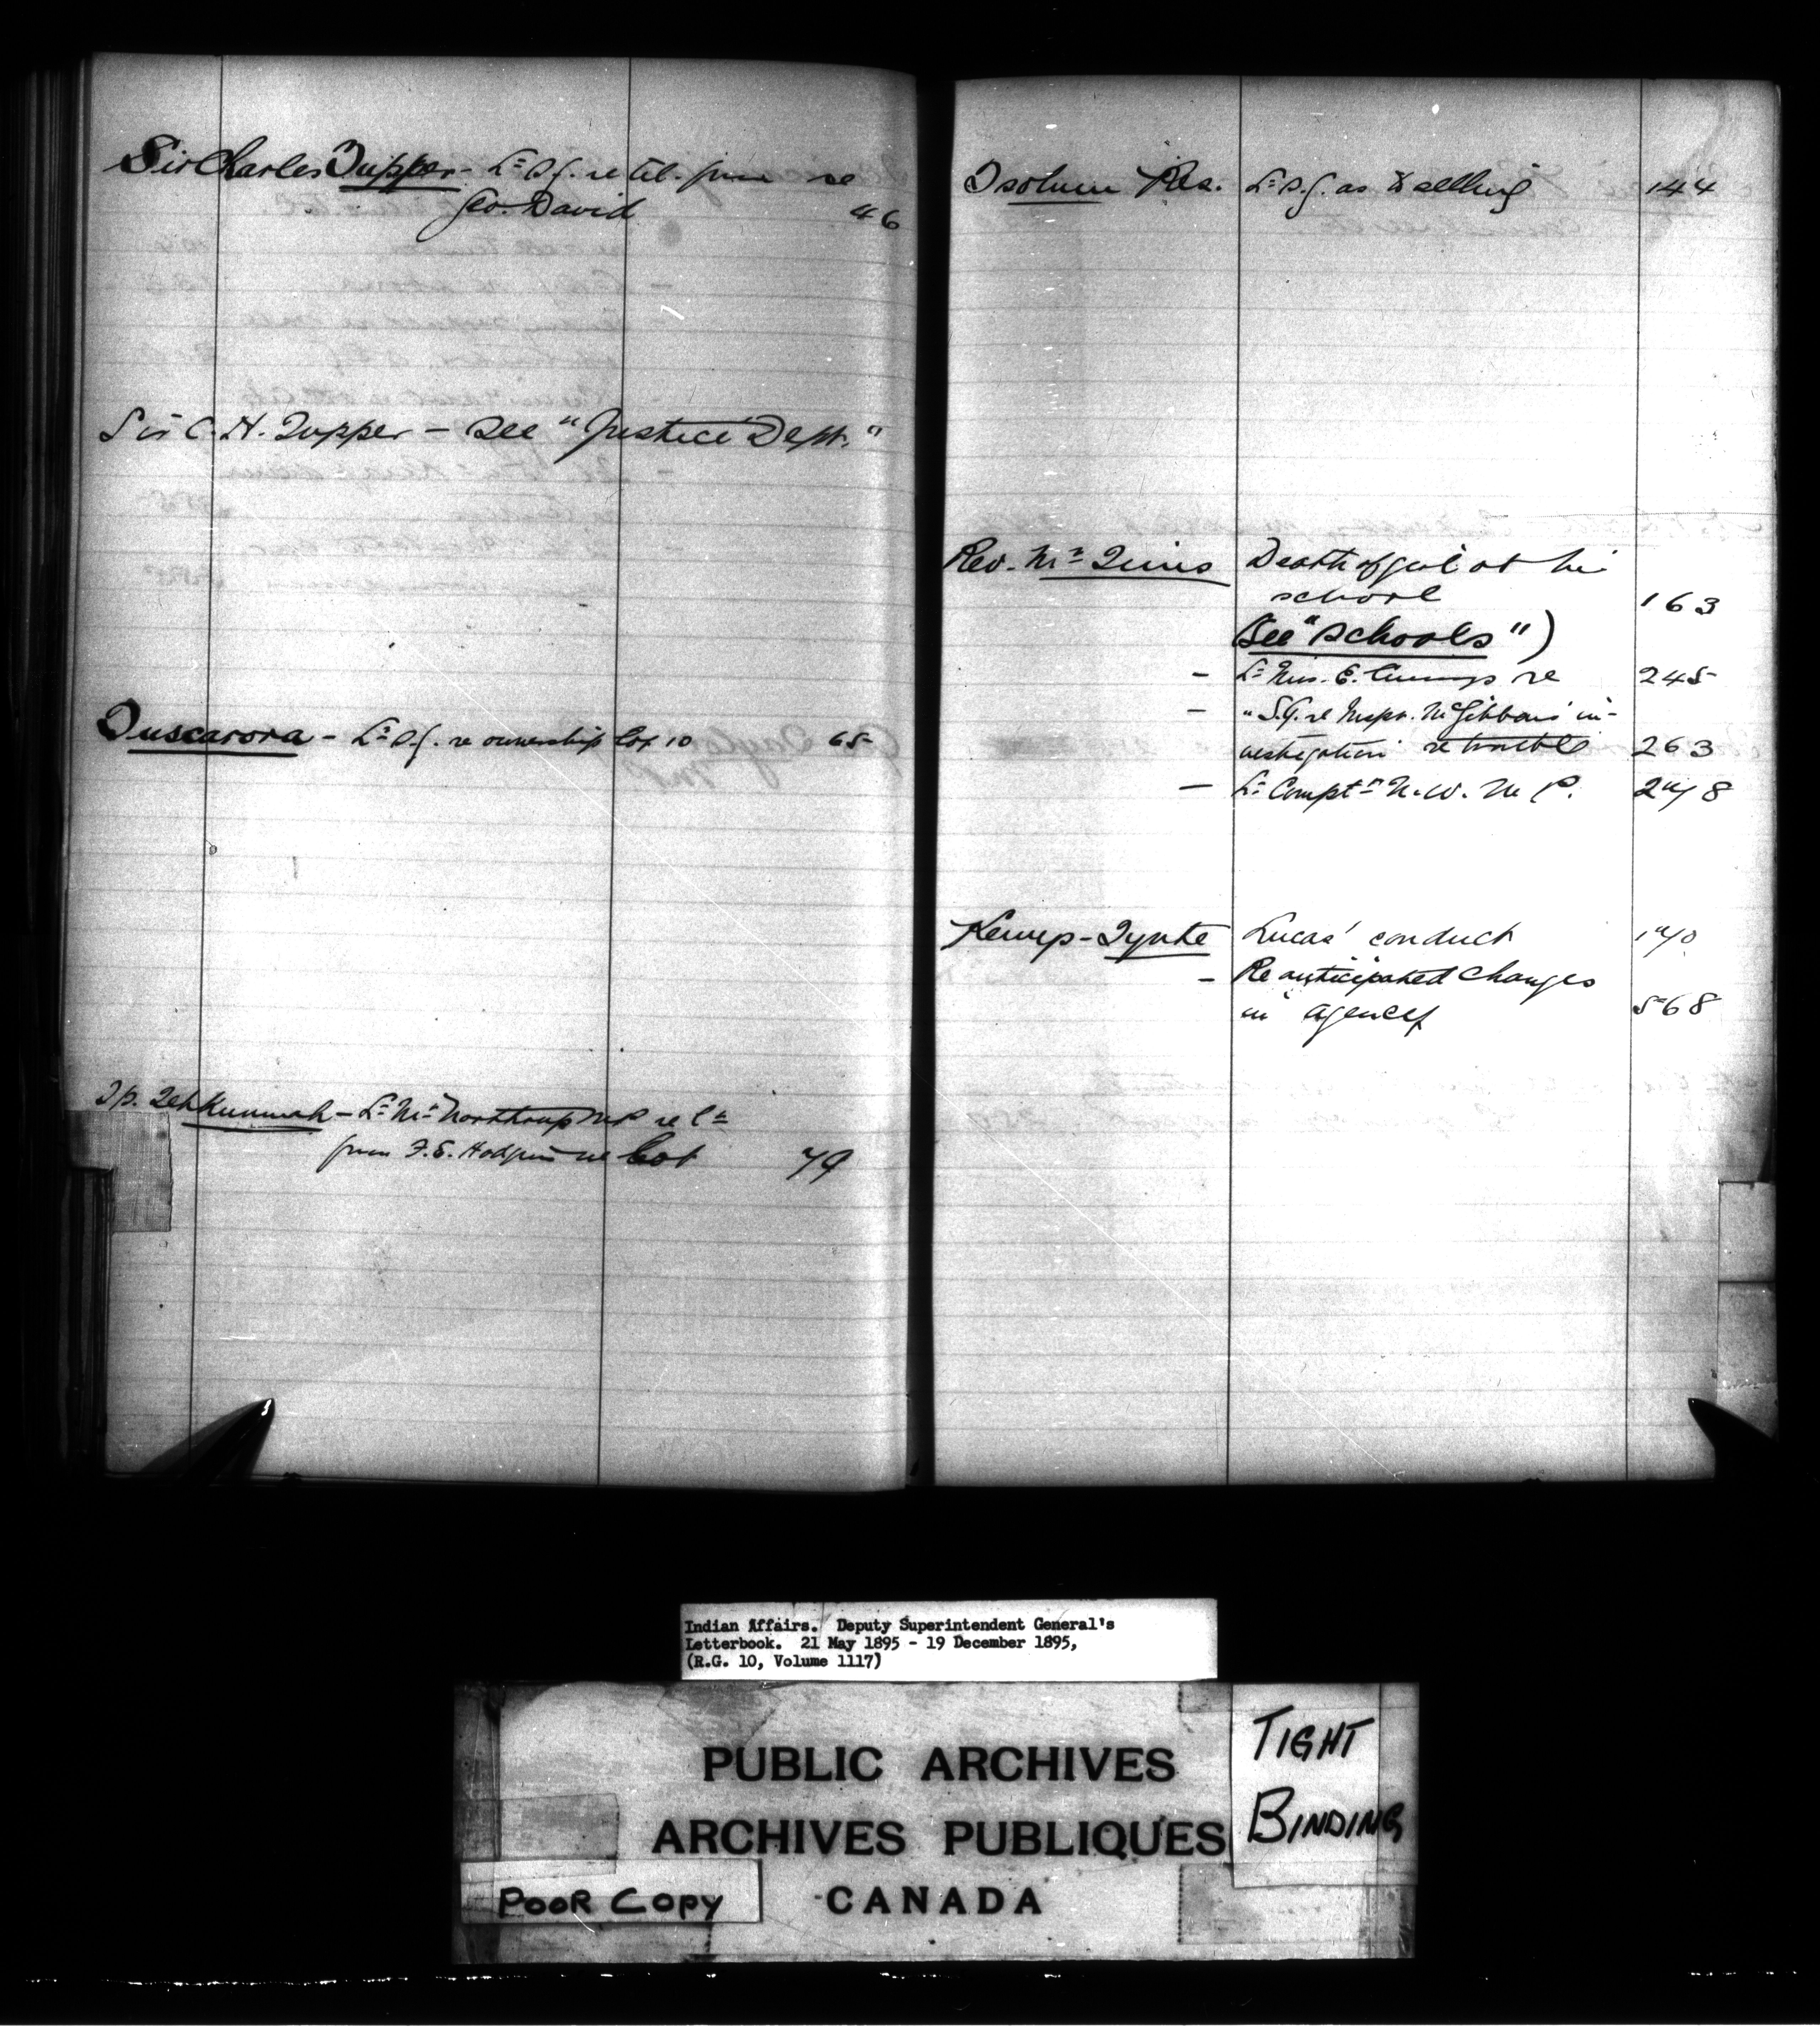 Sir Charles Tupper - Lr S.G. re tel. from re
Geo. David 46
Sir C. H. Tupper - see "Justice Dept."
Tuscarora - Lr S.G. re ownership lot 10 65
Tp. Tehkummah - Lr Mr Northrup M.P. re lr
from F.E. Hodgins re lot 79
Tsolum Res. Lr S.G. as to selling 144
Rev. Mr Tims Death of girl at his
school 163
(See "Schools")
- Lr Mrs. E. Cummings re 245
- " S.G. re Inspr. McGibbon's in-
vestigation re trouble 263
- Lr Comptr N.W.M.P. 278
Kemys-Tynte Lucas' conduct 170
- Re anticipated changes
in agency 568
Indian Affairs. Deputy Superintendent General's
Letterbook. 21 May 1895 - 19 December 1895,
(R.G. 10, Volume 1117)
PUBLIC ARCHIVES
ARCHIVES PUBLIQUES
CANADA
TIGHT
BINDING
POOR COPY